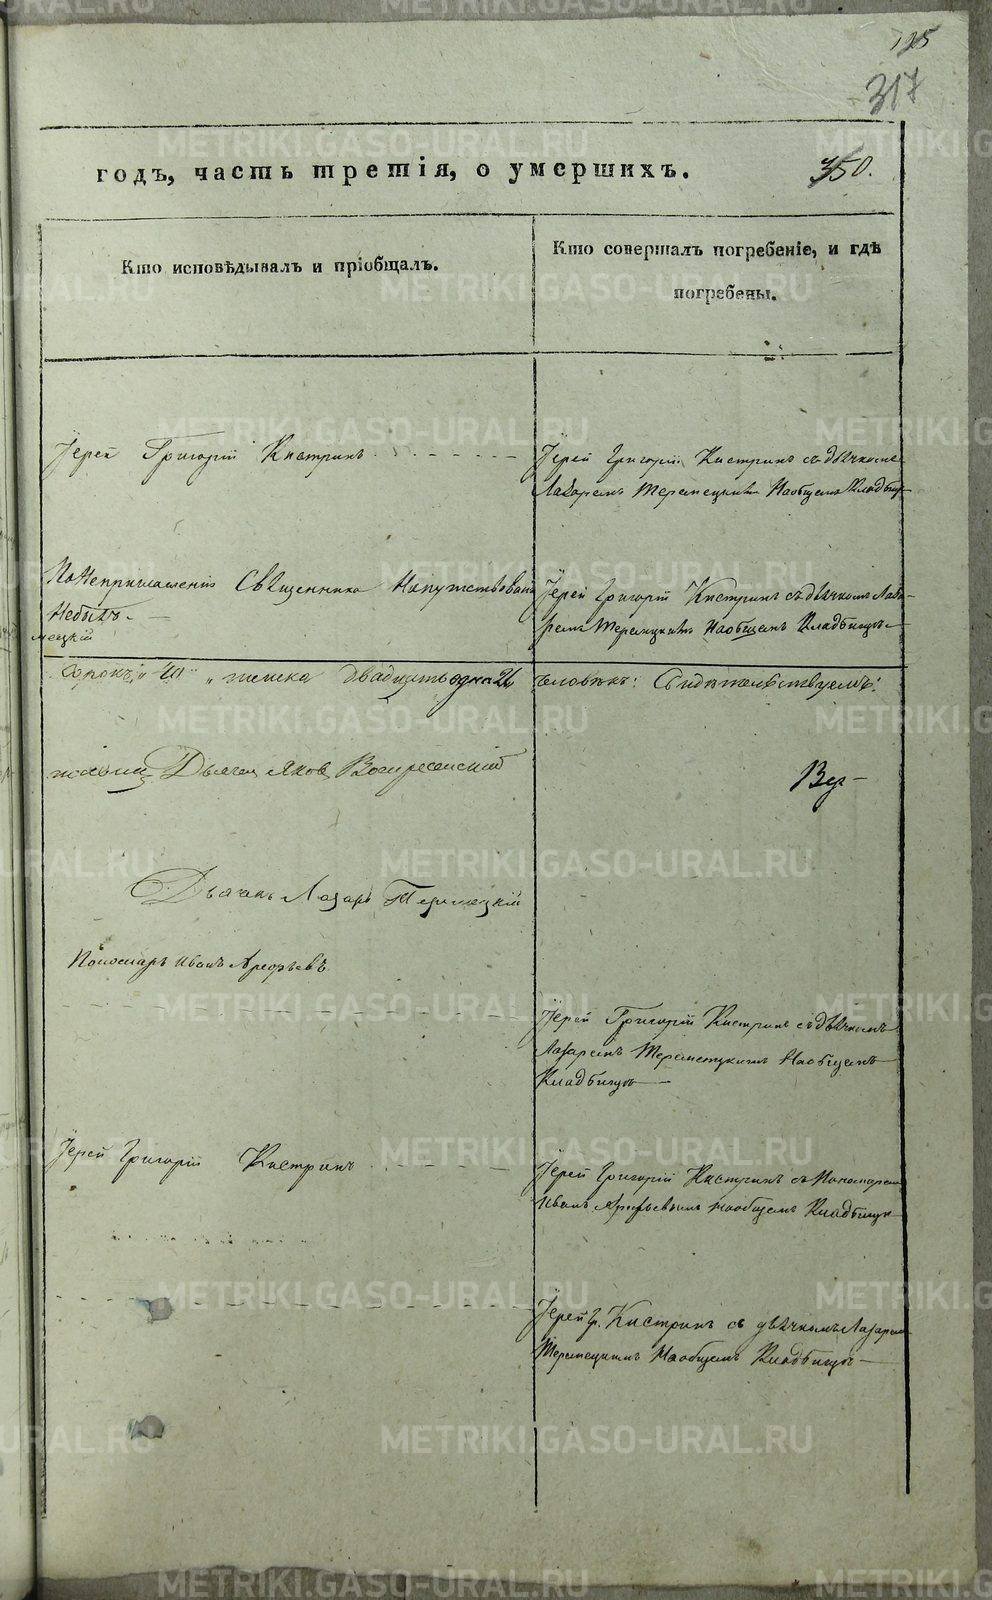 125
317
350.
годъ, часть третія, о умершихъ.
Кто исповѣдывалъ и пріобщалъ.
Кто совершалъ погребеніе, и гдѣ
погребены.
Іерей Григорій Кистринъ
Іерей Григорій Кистринъ съ дьячкомъ
Лазаремъ Теремецкимъ На общемъ Кладбищѣ
По Неприглашенію Священника Напутствованъ
Небылъ.
мецкій
Іерей Григорій Кистринъ съ дьячкомъ Лаза-
ремъ Теремецкимъ На общемъ Кладбищѣ
сорокъ женска двадцать одна 21 человѣкъ: Свидѣтельствуемъ:
Дьячекъ Яковъ Воскресенскій
Ву-
Дьячекъ Лазарь Теремецкій
Пономарь Иванъ Арефьевъ
Іерей Григорій Кистринъ съ дьячкомъ
Лазаремъ Теремецкимъ На общемъ
Кладбищѣ
Іерей Григорій Кистринъ
Іерей Григорій Кистринъ съ Пономаремъ
Иваномъ Арефьевымъ на общемъ Кладбищѣ
Іерей Гр. Кистринъ съ дьячкомъ Лазаремъ
Теремецкимъ На общемъ Кладбищѣ
METRIKI.GASO-URAL.RU